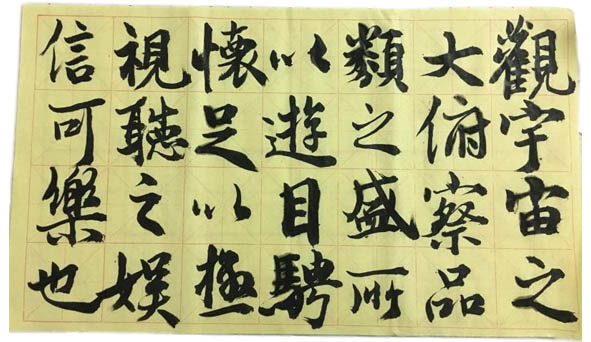 觀宇宙之
大俯察品
類之盛所
以遊目騁
懷足以極
視聽之娛
信可樂也